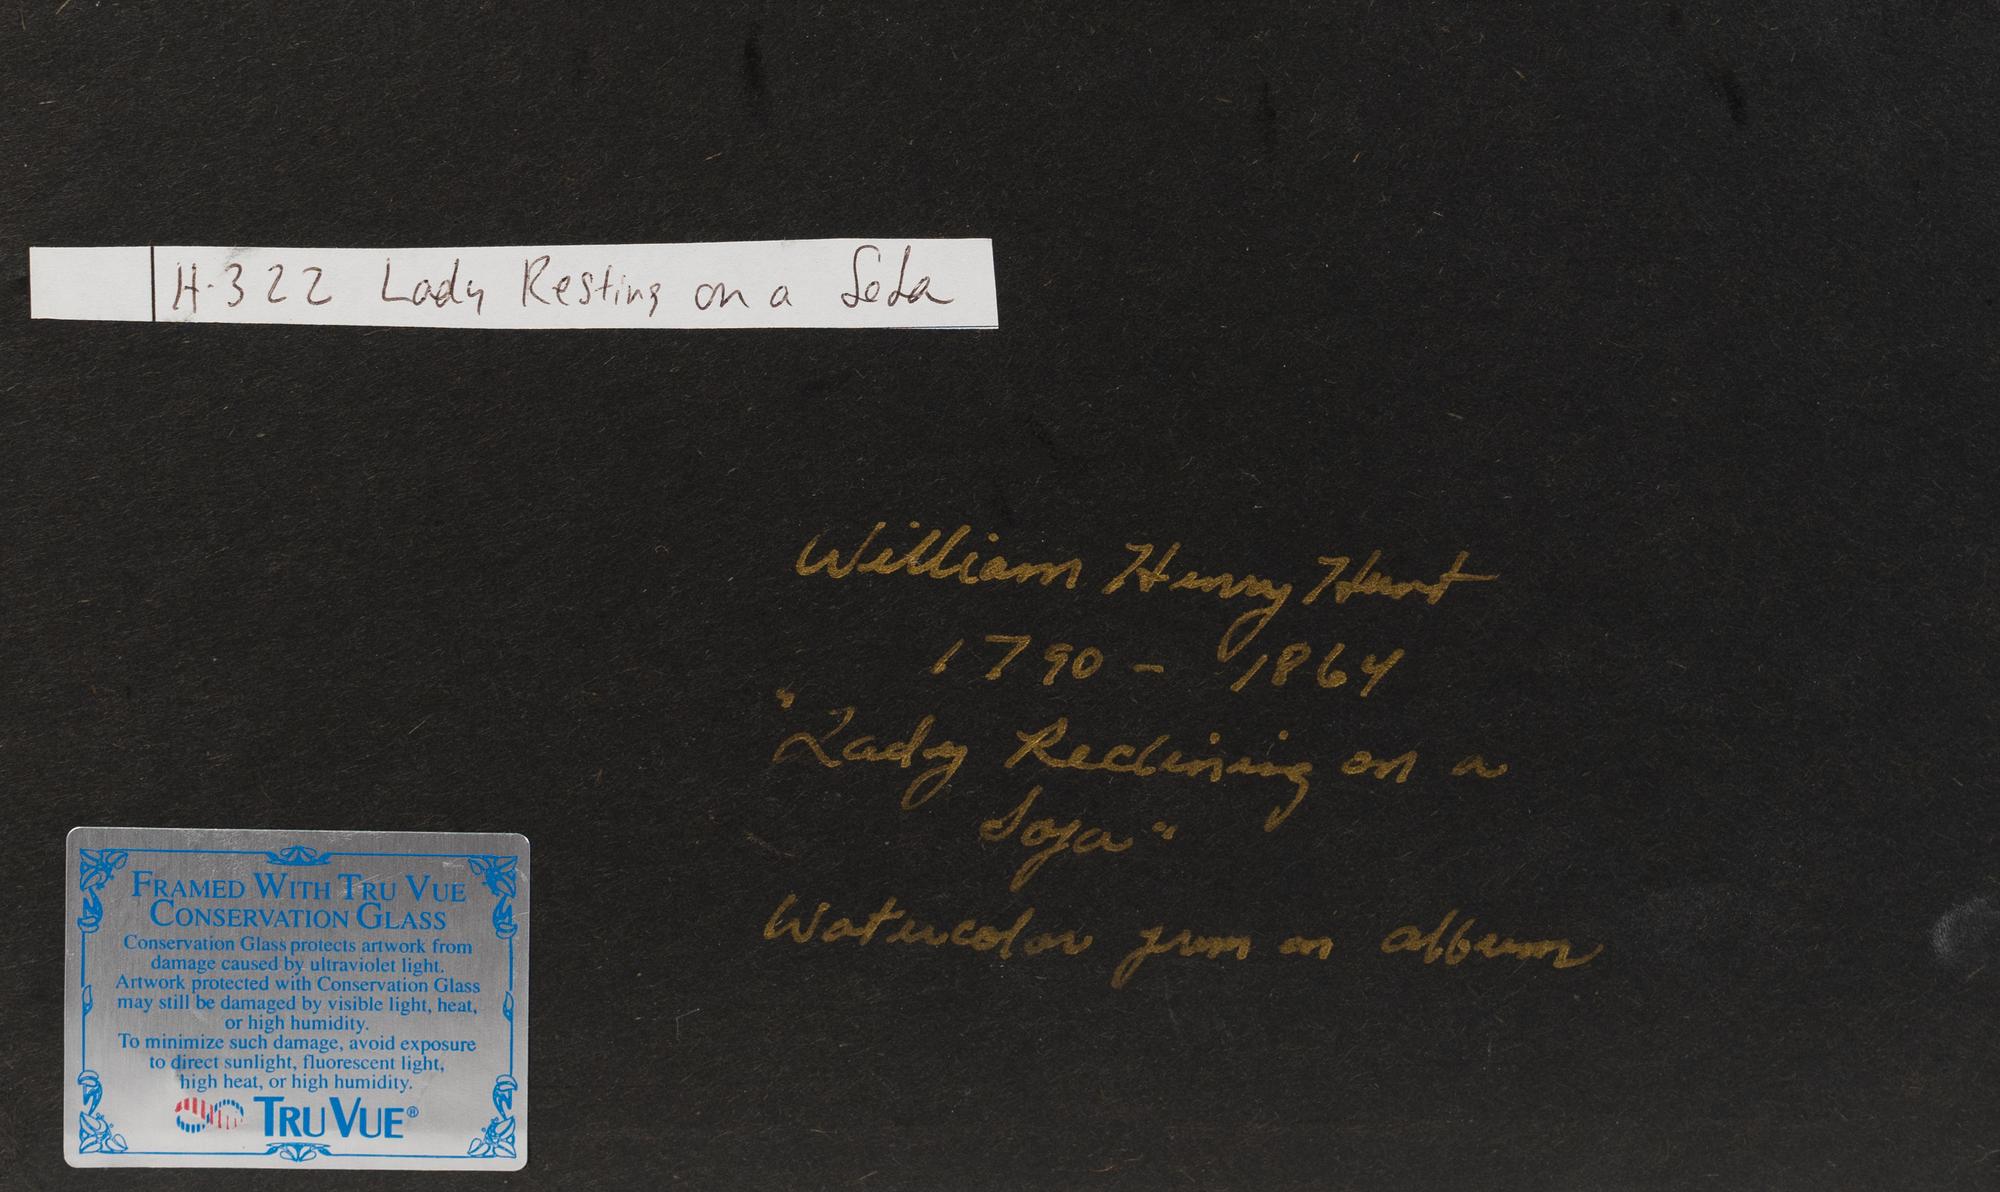 H-322 Lady Resting on a Sofa
William Henry Hunt
1790 - 1864
"Lady Reclining on a
Sofa"
Watercolor gum on album
FRAMED WITH TRU VUE
CONSERVATION GLASS
Conservation Glass protects artwork from
damage caused by ultraviolet light.
Artwork protected with Conservation Glass
may still be damaged by visible light, heat,
or high humidity.
To minimize such damage, avoid exposure
to direct sunlight, fluorescent light,
high heat, or high humidity.
TRU VUE®